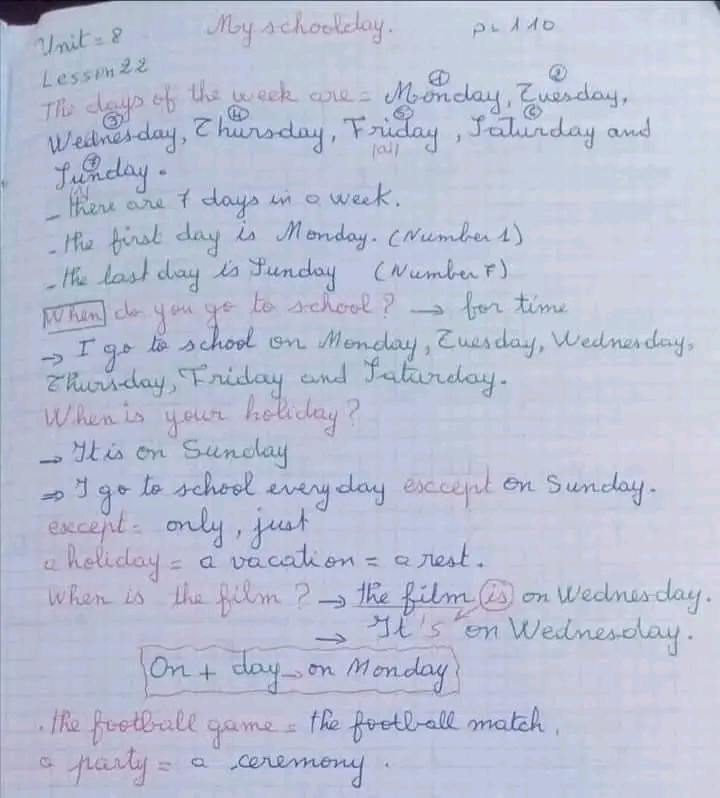 My schoolday. p: 110
Unit = 8
Lesson 22
The days of the week are = Monday, Tuesday,
① ②
Wednesday, Thursday, Friday, Saturday and
③ ④ ⑤ ⑥
/ai/
Sunday.
⑦
/ʌ/
- there are 7 days in a week.
- the first day is Monday. (Number 1)
- the last day is Sunday (Number 7)
When do you go to school? → for time
→ I go to school on Monday, Tuesday, Wednesday,
Thursday, Friday and Saturday.
When is your holiday?
→ It is on Sunday
⇒ I go to school every day esccept on Sunday.
esccept = only, just
a holiday = a vacation = a rest.
When is the film? → the film is on Wednesday.
→ It's on Wednesday.
On + day → on Monday
. the football game = the football match.
a party = a ceremony.